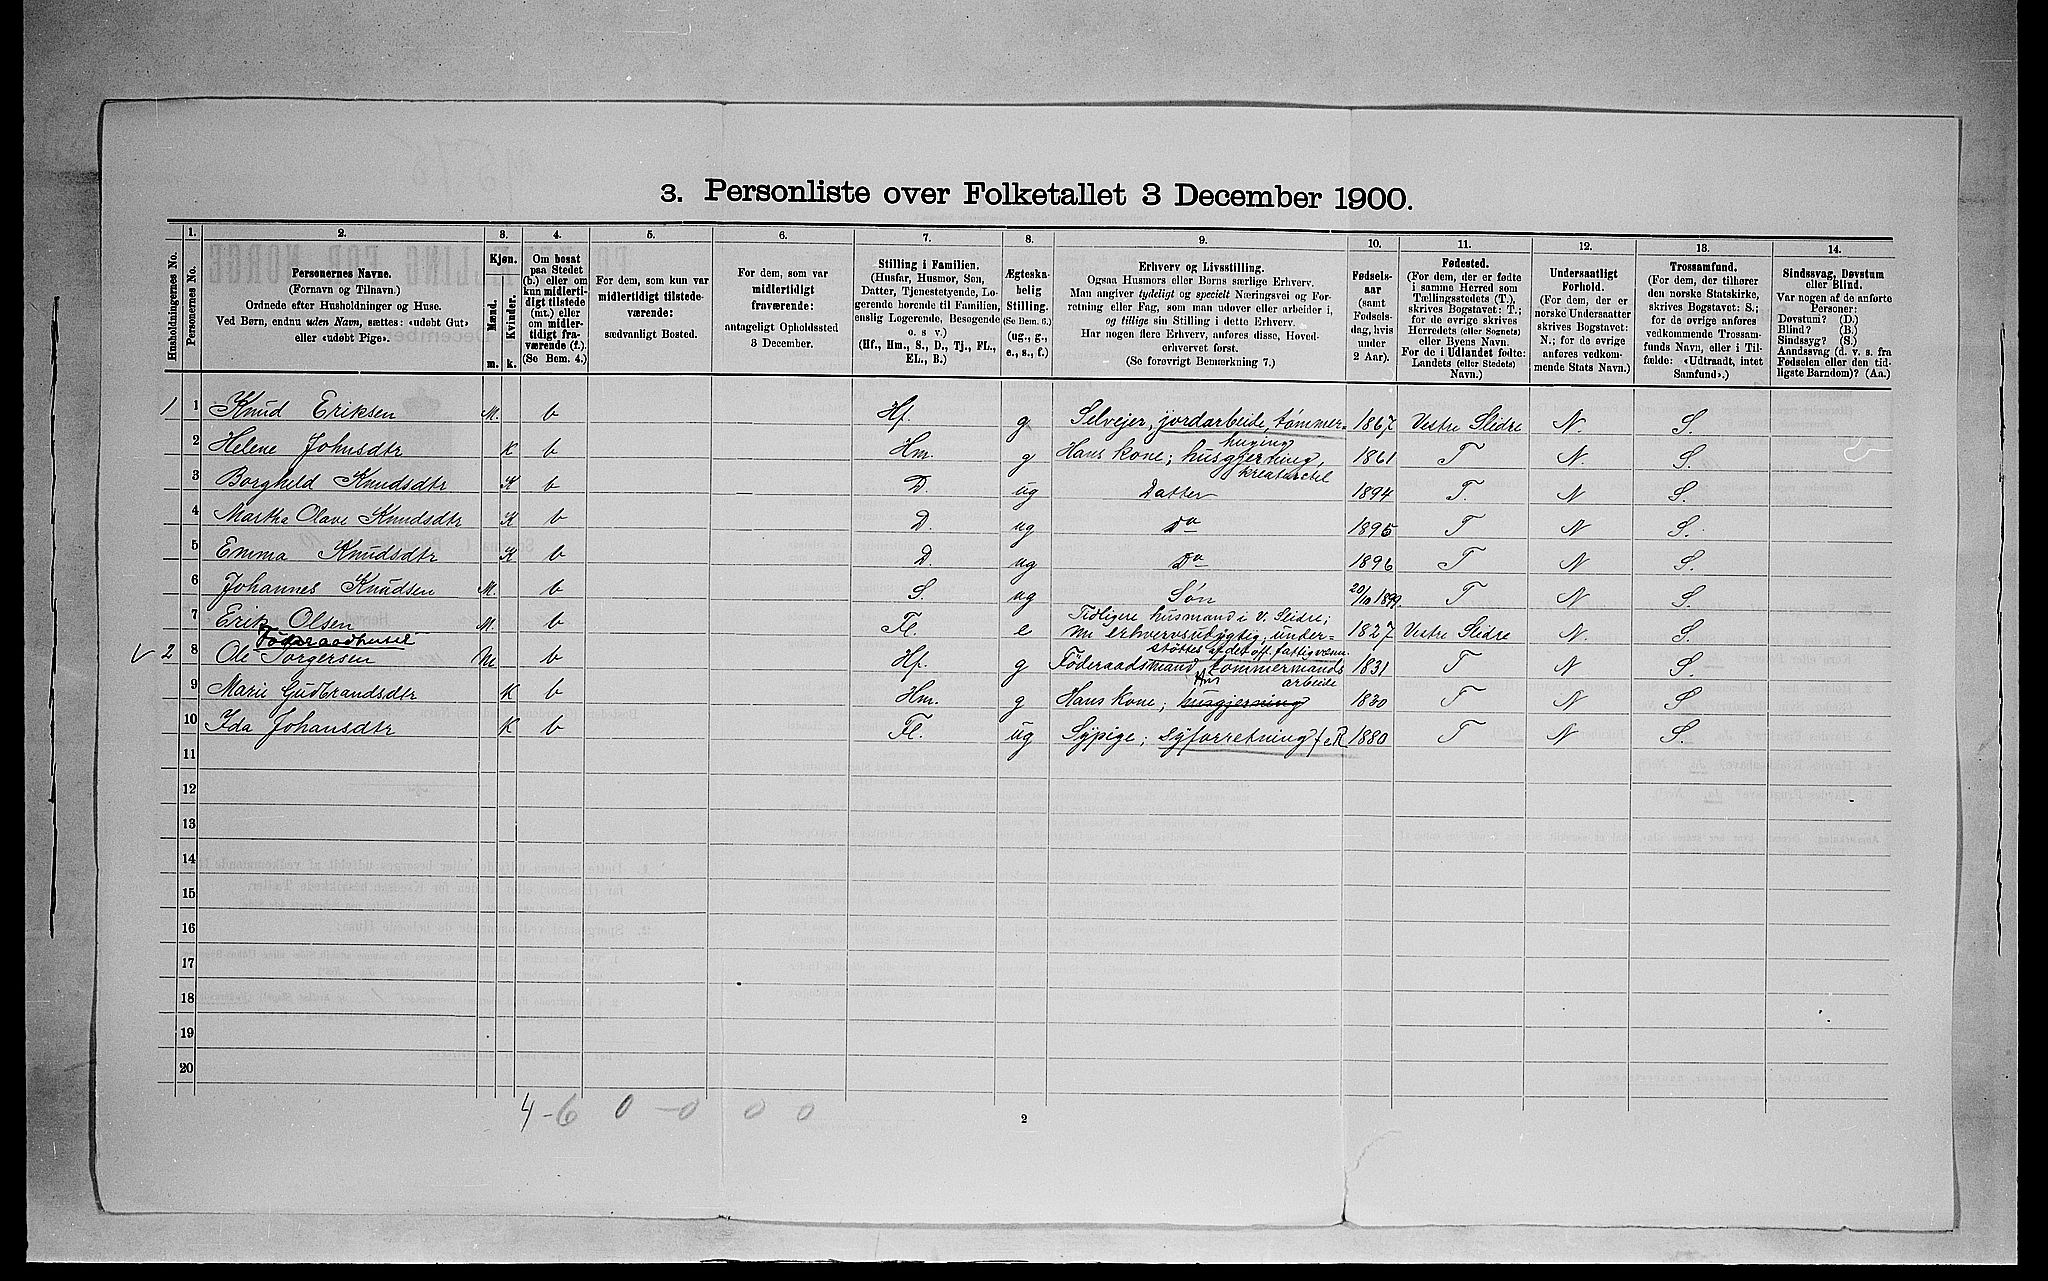 3. Personliste over Folketallet 3 December 1900.
1. 2. 3. 4. 5. 6. 7. 8. 9. 10. 11. 12. 13. 14.
Husholdningernes No.
Personernes No.
Personernes Navne.
(Fornavn og Tilnavn.)
Ordnede efter Husholdninger og Huse.
Ved Børn, endnu uden Navn, sættes: «udøbt Gut»
eller «udøbt Pige».
Kjøn.
Mænd.
Kvinder.
m. k.
Om bosat
paa Stedet
(b.) eller om
kun midlerti-
digt tilstede
(mt.) eller
om midler-
tidigt fra-
værende (f.).
(Se Bem. 4.)
For dem, som kun var
midlertidigt tilstede-
værende:
sædvanligt Bosted.
For dem, som var
midlertidigt
fraværende:
antageligt Opholdssted
3 December.
Stilling i Familien.
(Husfar, Husmor, Søn,
Datter, Tjenestetyende, Lo-
gerende hørende til Familien,
enslig Logerende, Besøgende
o. s v.)
(Hf., Hm., S., D., Tj., FL.,
EL., B.)
Ægteska-
belig
Stilling.
(Se Bem. 6.)
(ug., g.,
e., s., f.)
Erhverv og Livsstilling.
Ogsaa Husmors eller Børns særlige Erhverv.
Man angiver tydeligt og specielt Næringsvei og For-
retning eller Fag, som man udøver eller arbeider i,
og tillige sin Stilling i dette Erhverv.
Har nogen flere Erhverv, anføres disse, Hoved-
erhvervet først.
(Se forøvrigt Bemærkning 7.)
Fødsels-
aar
(samt
Fødsels-
dag, hvis
under
2 Aar).
Fødested.
(For dem, der er fødte
i samme Herred som
Tællingsstedets (T.),
skrives Bogstavet: T.;
for de øvrige skrives
Herredets (eller Sognets)
eller Byens Navn.
For de i Udlandet fødte:
Landets (eller Stedets)
Navn.)
Undersaatligt
Forhold.
(For dem, der er
norske Undersaatter
skrives Bogstavet:
N.; for de øvrige
anføres vedkom-
mende Stats Navn.)
Trossamfund.
(For dem, der tilhører
den norske Statskirke,
skrives Bogstavet: S.;
for de øvrige anføres
vedkommende Trossam-
funds Navn, eller i Til-
fælde: «Udtraadt, intet
Samfund».)
Sindssvag, Døvstum
eller Blind.
Var nogen af de anførte
Personer:
Døvstum? (D.)
Blind? (B.)
Sindssyg? (S.)
Aandssvag (d. v. s. fra
Fødselen eller den tid-
ligste Barndom)? (Aa.)
1 1 Knud Eriksen M. b Hf. g Selvejer, jordarbeide, tømmer- 1867 Vestre Slidre N. S.
huging
2 Helene Johnsdtr K b Hm. g Hans kone; husgjerning, 1861 T N. S.
kreaturstel
3 Borghild Knudsdtr K b D. ug Datter 1894 T. N S.
4 Martha Olave Knudsdtr K b D. ug do 1895 T N S.
5 Emma Knudsdtr K b D ug Do 1896 T N S.
6 Johannes Knudsen M. b S. ug Søn 20/10 1899. T N S.
7 Erik Olsen M. b Fl. e Tidligere husmand i V. Slidre; nu erhvervsudygtig, under- 1827 Vestre Slidre N. S.
støttes af det off. fattigvæsen.
Föderaadhuset
V 2 8 Ole Torgersen M b Hf. g Föderaadsmand, tømmermands 1831 T N S.
arbeide
9 Marie Gudbrandsdtr K b Hm. g Hans kone; Hus husgjerning 1830 T N S
10 Ida Johansdtr K b Fl. ug Sypige; syforretning f. e R 1880 T N S.
11
12
13
14
15
16
17
18
19
20
4-6 0 -0 0 0
2